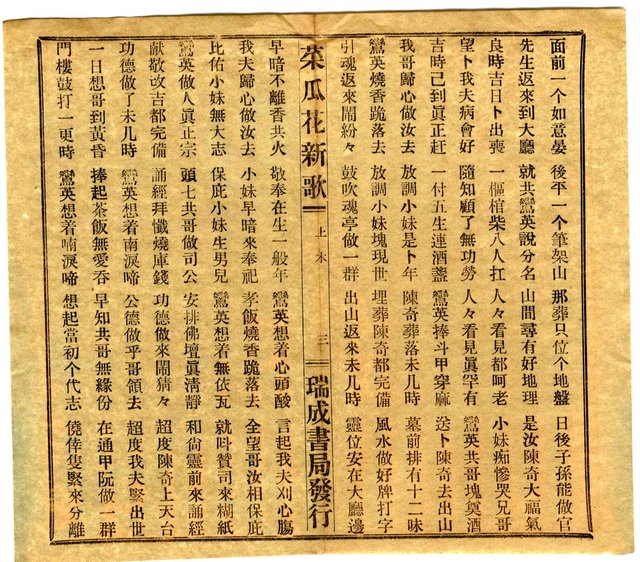 面前一个如意晏 後平一个筆架山 那葬只位个地盤 日後子孫能做官
先生返來到大廳 就共鸞英說分名 山間尋有好地理 是汝陳奇大福氣
良時吉日卜出喪 一樞棺柴八人扛 人々看見都呵老 小妹痴慘哭兄哥
望卜我夫病會好 隨知顧了無功勞 人々看見眞罕有 鸞英共哥塊奠酒
吉時己到眞正赶 一付五生連酒盞 鸞英捧斗甲穿麻 送卜陳奇去出山
我哥歸心做汝去 放調小妹是卜年 陳奇葬落未几時 墓前排有十二味
鸞英燒香跪落去 放調小妹塊現世 埋葬陳奇都完備 風水做好牌打字
引魂返來鬧紛々 鼓吹魂亭做一群 出山返來未几時 靈位安在大廳邊
菜瓜花新歌 上本 三 瑞成書局發行
早暗不離香共火 敬奉在生一般年 鸞英想着心頭酸 言起我夫刈心膓
我夫歸心做汝去 小妹早暗來奉祀 孝飯燒香跪落去 全望哥汝相保庇
比佑小妹無大志 保庇小妹生男兒 鸞英想着無依瓦 就叫贊司來糊紙
鸞英做人眞正宗 頭七共哥做司公 安排佛壇眞清靜 和尙靈前來誦經
献敬改吉都完備 誦經拜懺燒庫錢 功德做來鬧猜々 超度陳奇上天台
功德做了未几時 鸞英想着喃淚啼 公德做乎哥領去 超度我夫緊出世
一日想哥到黃昏 捧起茶飯無愛呑 早知共哥無緣份 在通甲阮做一群
門樓鼓打一更時 鸞英想着喃淚啼 想起當初个代志 僥倖隻緊來分離